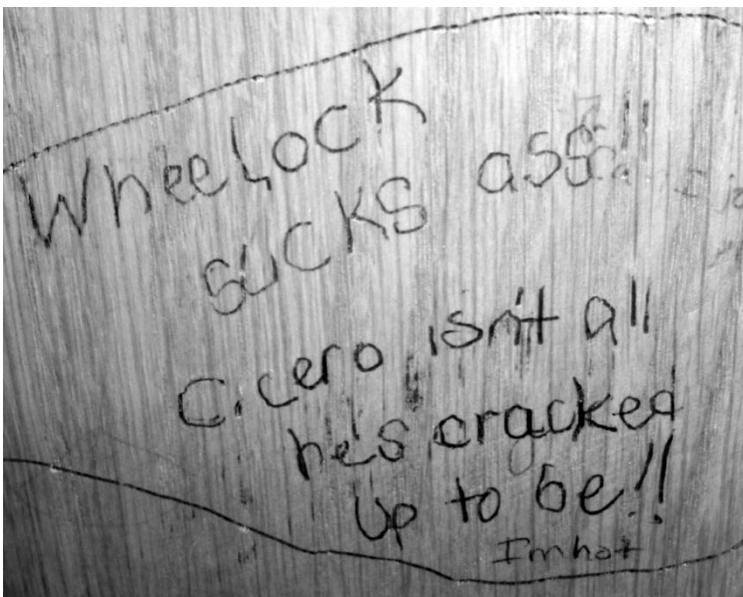 WheeLock
SUCKS ass!!
Cicero isn't all
he's cracked
up to be!!
Imhot